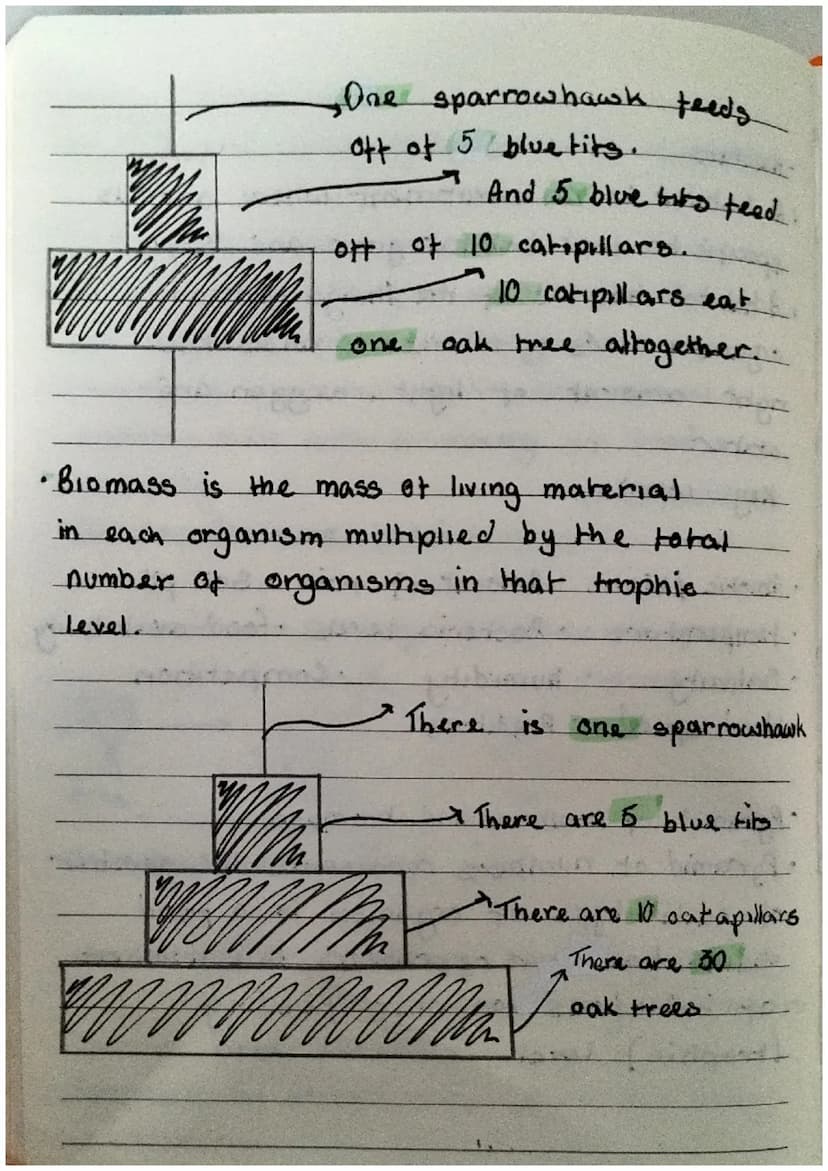 One sparrowhawk feeds
off of 5 blue tits.
And 5 blue tits feed
off of 10 catipillars.
10 catipillars eat
one oak tree altogether.
• Biomass is the mass of living material
in each organism multiplied by the total
number of organisms in that trophic
level.
There is one sparrowhawk
There are 5 blue tits
There are 10 catapillars
There are 30
oak trees